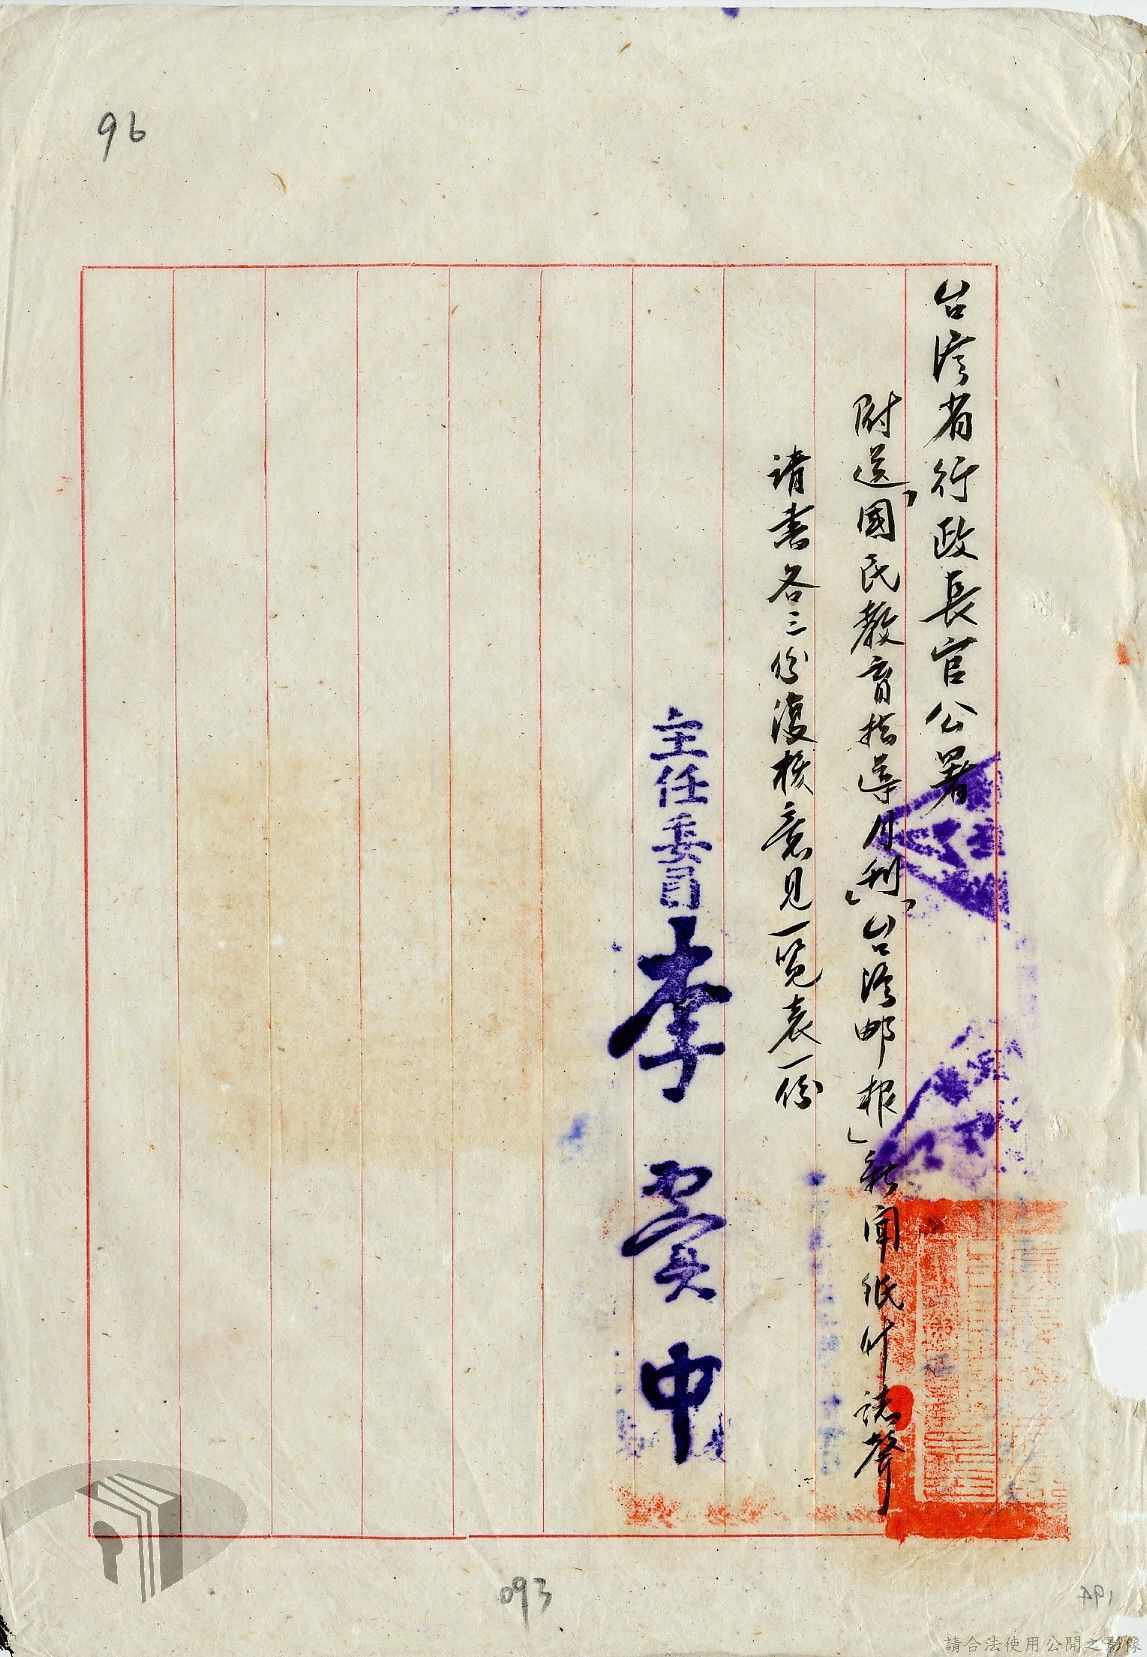 96
台湾省行政長官公署
附送「國民教育指導月刊」「台湾邮报」新闻纸什誌聲
请书各三份復核意見一览表一份
主任委員 李翼中
093
請合法使用公開之影像